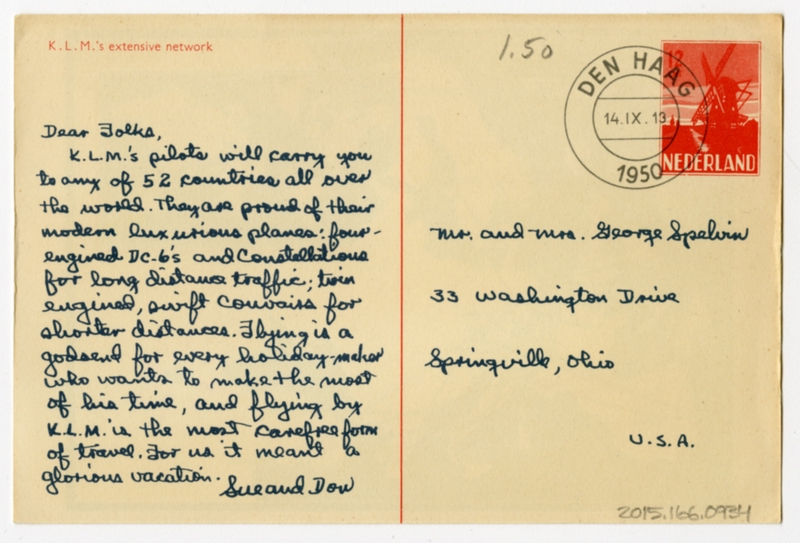 K.L.M.'s extensive network
1.50
DEN HAAG
14.IX.13
1950
12
NEDERLAND
Dear Folks,
K.L.M.'s pilots will carry you
to any of 52 countries all over
the world. They are proud of their
modern luxurious planes: four-
engined DC-6's and Constellations
for long distance traffic; twin
engined, swift Convairs for
shorter distances. Flying is a
godsend for every holiday-maker
who wants to make the most
of his time, and flying by
K.L.M. is the most carefree form
of travel. For us it meant a
glorious vacation.
Sue and Don
Mr. and Mrs. George Spelvin
33 Washington Drive
Springville, Ohio
U.S.A.
2015.166.0934